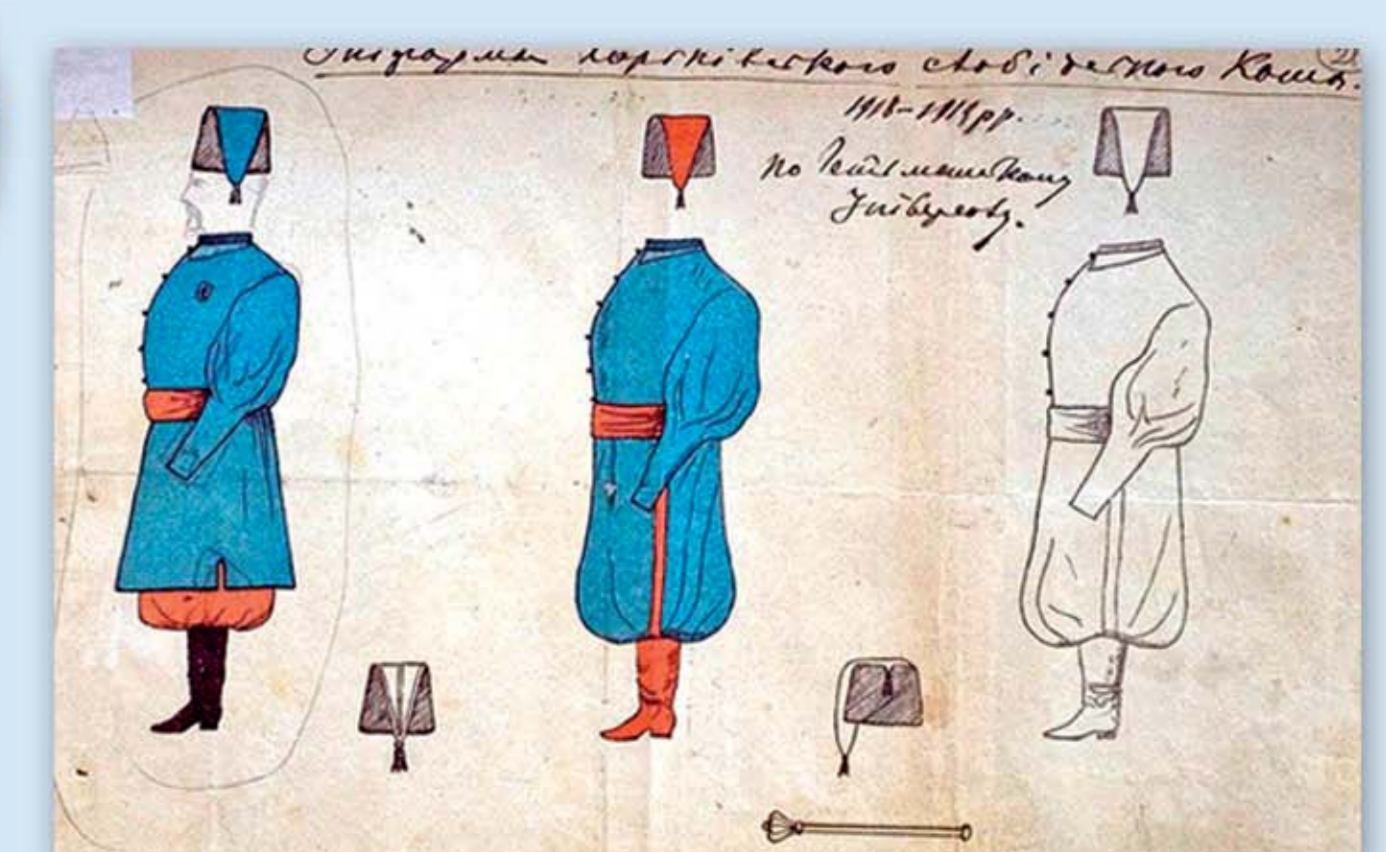 Уніформа харківського слобідського Коша.
1918-1919 рр.
по Гетьманському
Універсалу.